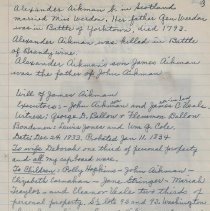 Alexander Aikman b. in Scotland
married Miss Werdon. Her father Geo. Werdon
was in Battle of Yorktown, died 1793.
Alexander Aikman was killed in Battle
of Brandywine.
Alexander Aikman's son James Aikman
was the father of John Aikman
Will of James Aikman
Executors: - John Aikman and James C. Veale
Witness: George D. Ballow & Thomson Ballow
Bondsmen: James and Wm. G. Cole
Date: Dec 28 1833, Probated Jan. 11, 1834
To wife Deborah one third of personal property
and all my cupboard ware.
To Children: Polly Hopkins - John Aikman -
Elizabeth - Jane Stringer - Mariah
Taylor and Eleanor Veale two thirds of
personal property. S ½ lots 93 and 92 Washington